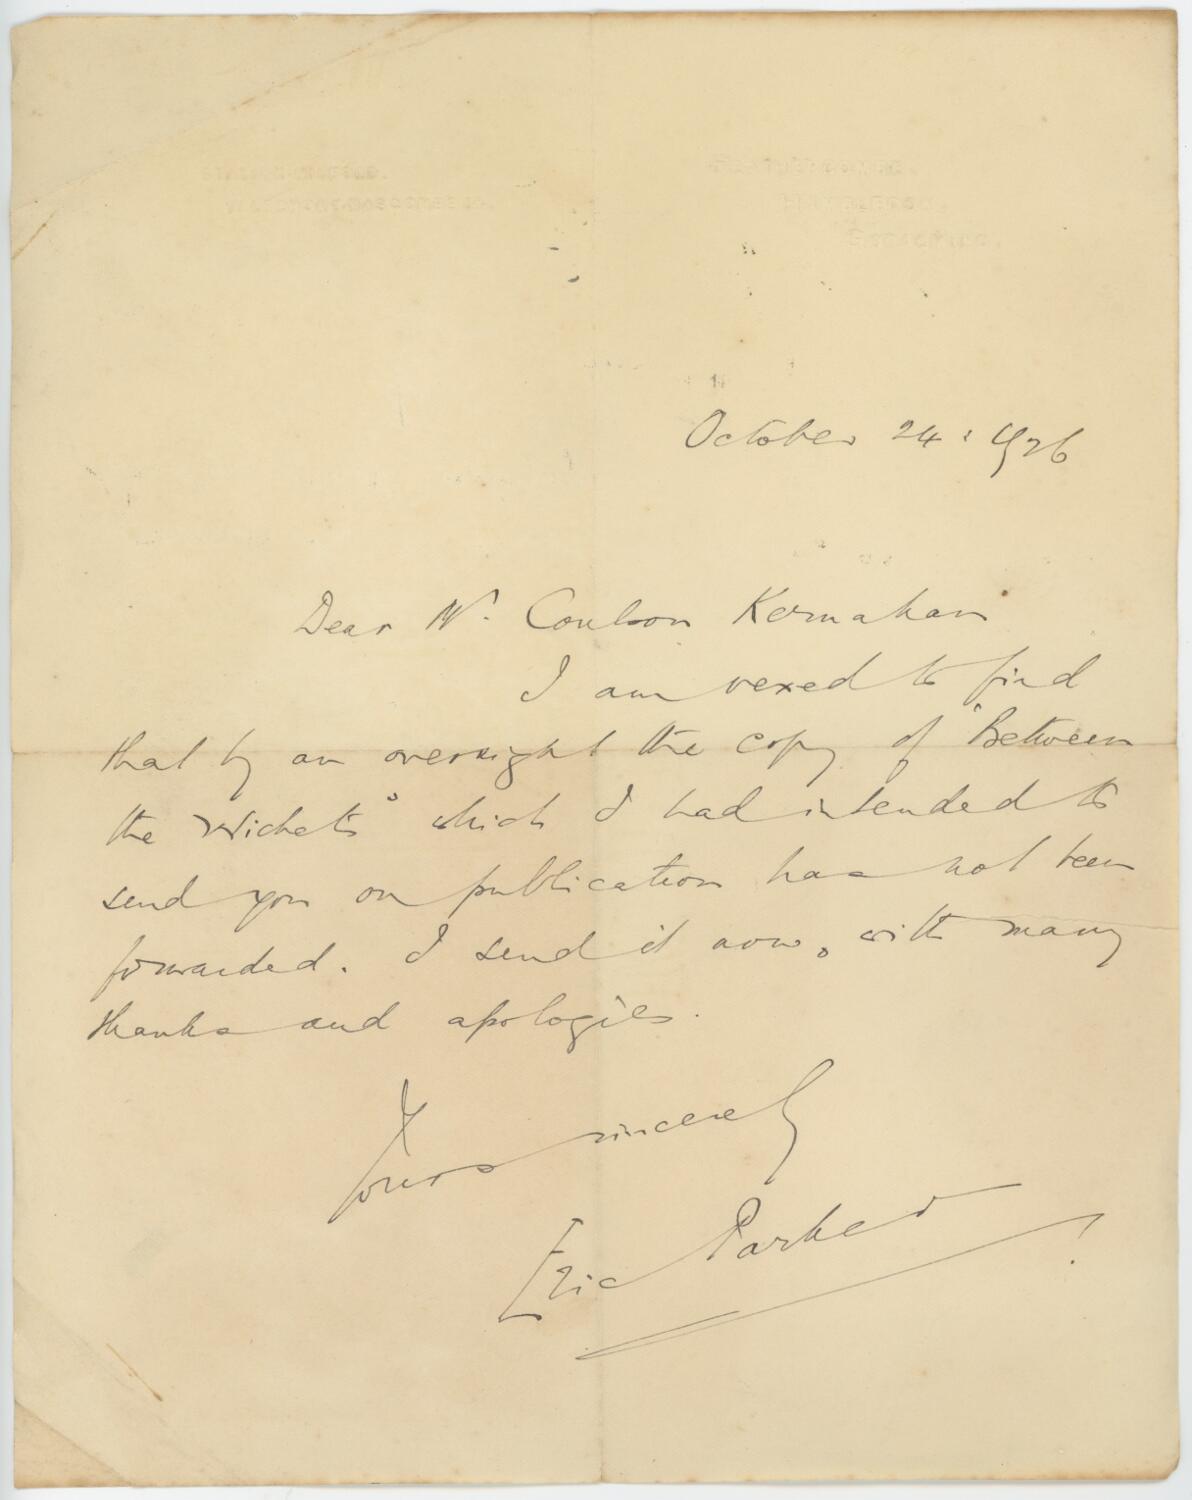 October 24: 1926
Dear Mr. Coulson Kernahan
I am vexed to find
that by an oversight the copy of "Between
the Wickets" which I had intended to
send you on publication has not been
forwarded. I send it now, with many
thanks and apologies.
Yours sincerely
Eric Parker